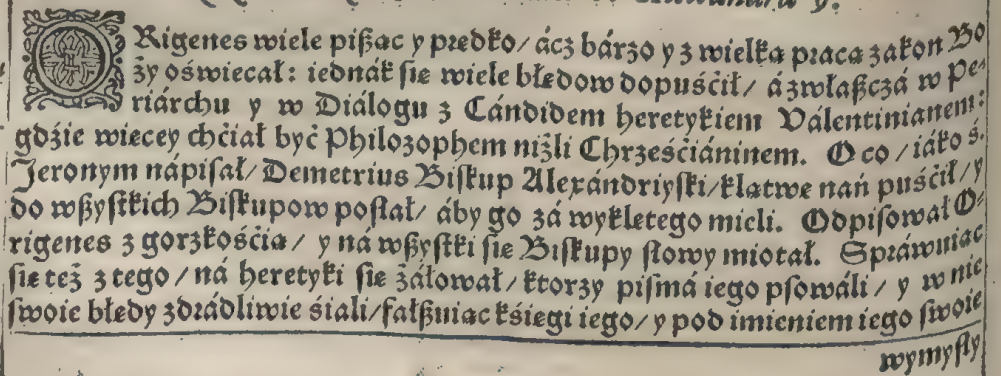 ORigenes wiele pißąc y prędko/ ácż bárzo y z wielką pracą zakon Bo
ży oświecał: iednák się wiele błędow dopuśćił/ á zwłaßczá w Pe-
riárchu y w Diálogu z Cándidem heretykiem Válentinianem:
gdźie więcey chćiał być Philozophem niżli Chrześćiáninem. O co/ iáko ś.
Jeronym nápisał/ Demetrius Biskup Alexándriyski/ klątwę nań puśćił/ y
do wßystkich Biskupow posłał/ áby go zá wyklętego mieli. Odpisował O-
rigenes z gorzkośćią/ y ná wßystki się Biskupy słowy miotał. Spráwuiąc
się też z tego/ ná heretyki się żáłował/ ktorzy pismá iego psowáli/ y w nie
swoie błędy zdrádliwie śiali/ fałßuiąc kśięgi iego/ y pod imieniem iego swoie
wymysły